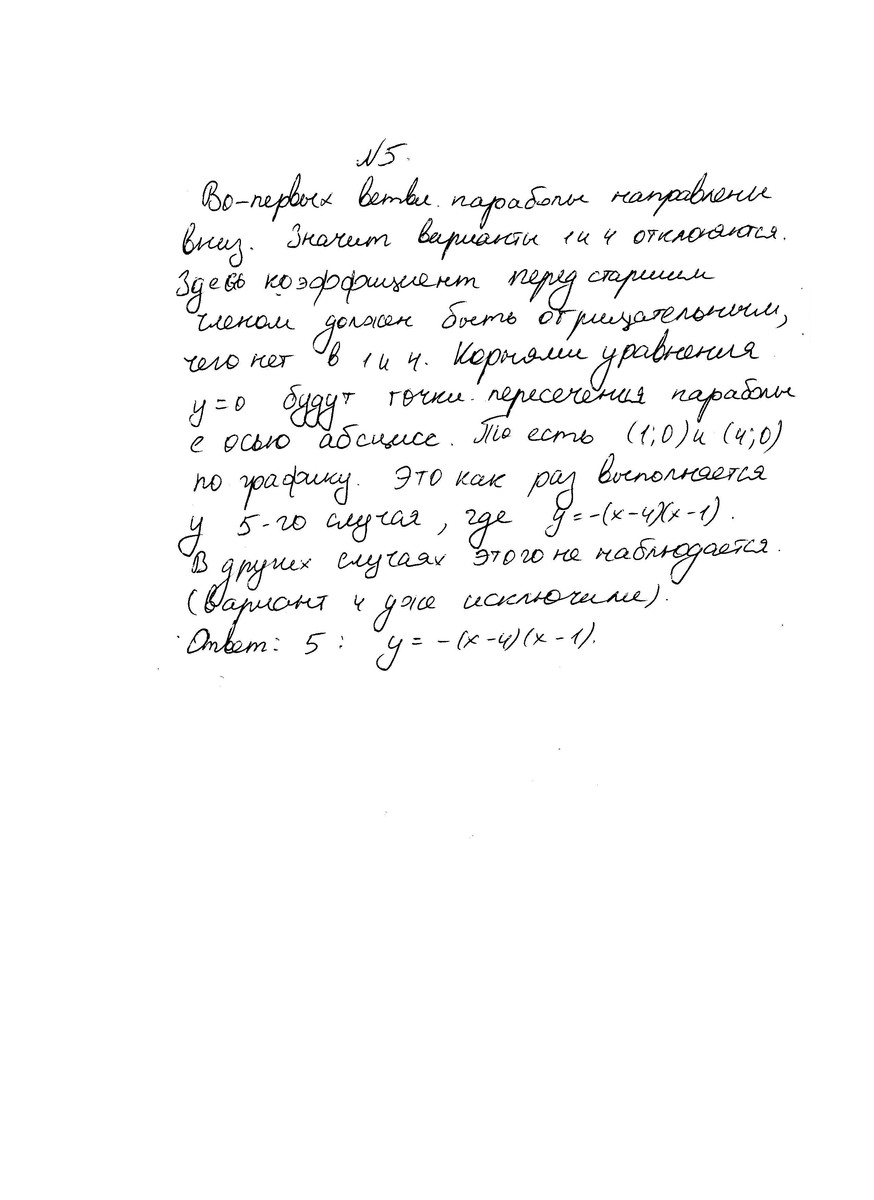 №5.
Во-первых ветви параболы направлены
вниз. Значит варианты 1 и 4 отклоняются.
Здесь коэффициент перед старшим
членом должен быть отрицательным,
чего нет в 1 и 4. Корнями уравнения
y=0 будут точки пересечения параболы
с осью абсцисс. То есть (1;0) и (4;0)
по графику. Это как раз выполняется
у 5-го случая, где y=-(x-4)(x-1).
В других случаях этого не наблюдается.
(Вариант 4 уже исключили).
Ответ: 5: y = -(x-4)(x-1).